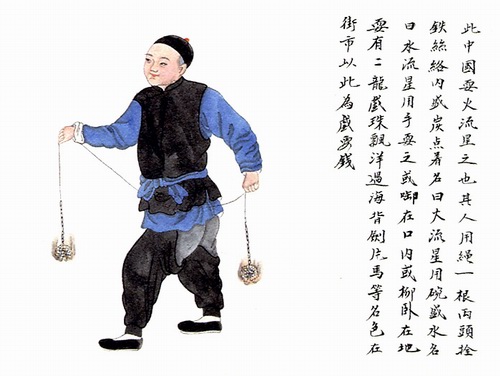 此中國耍火流星之也其人用繩一根両頭拴
鉄絲絡内盛炭点着名曰火流星用碗盛水名
曰水流星用手耍之或啣在口内或柳卧在地
耍有二龍戲珠飄洋過海背劍片馬等名色在
街市以此為戲要錢